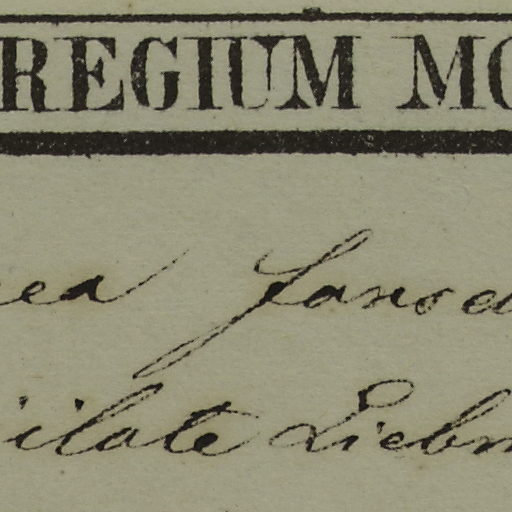 REGIUM MO
ea Janse
ilate Liebm